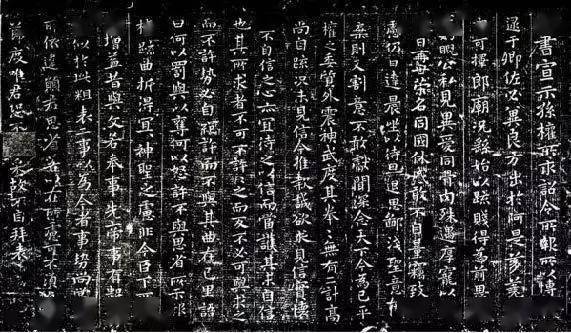 書宣示孫權所求詔令所報所以博
逮于卿佐必冀良方出於阿是芻蕘
可擇郎廟況繇始以疏賤得為前恩
睨公私見異愛同骨肉殊遇厚寵以
日再世榮名同國休慼敢不自量竊致
慮仍日達晨坐以待旦退思鄙淺聖意所
棄則又割意不敢獻聞深念天下今為已平
權之委質外震神武度其拳拳無有二計高
尚自疏況未見信今推款誠欲求見信實懷
不自信之心亦宜待之以信而當護其未自信
也其所求者不可不許許之而反不必可與求之
而不許勢必自絕許而不與其曲在己里語
曰何以罰與以奪何以怒許不與思省所示報
疏曲折得宜宜神聖之慮非今臣下所
增益昔與文若奉事先帝事有數
似於此粗表二事以為今者事勢尚當
所依違願君思省若以在所慮可不須
節度唯君恐不采故不自拜表